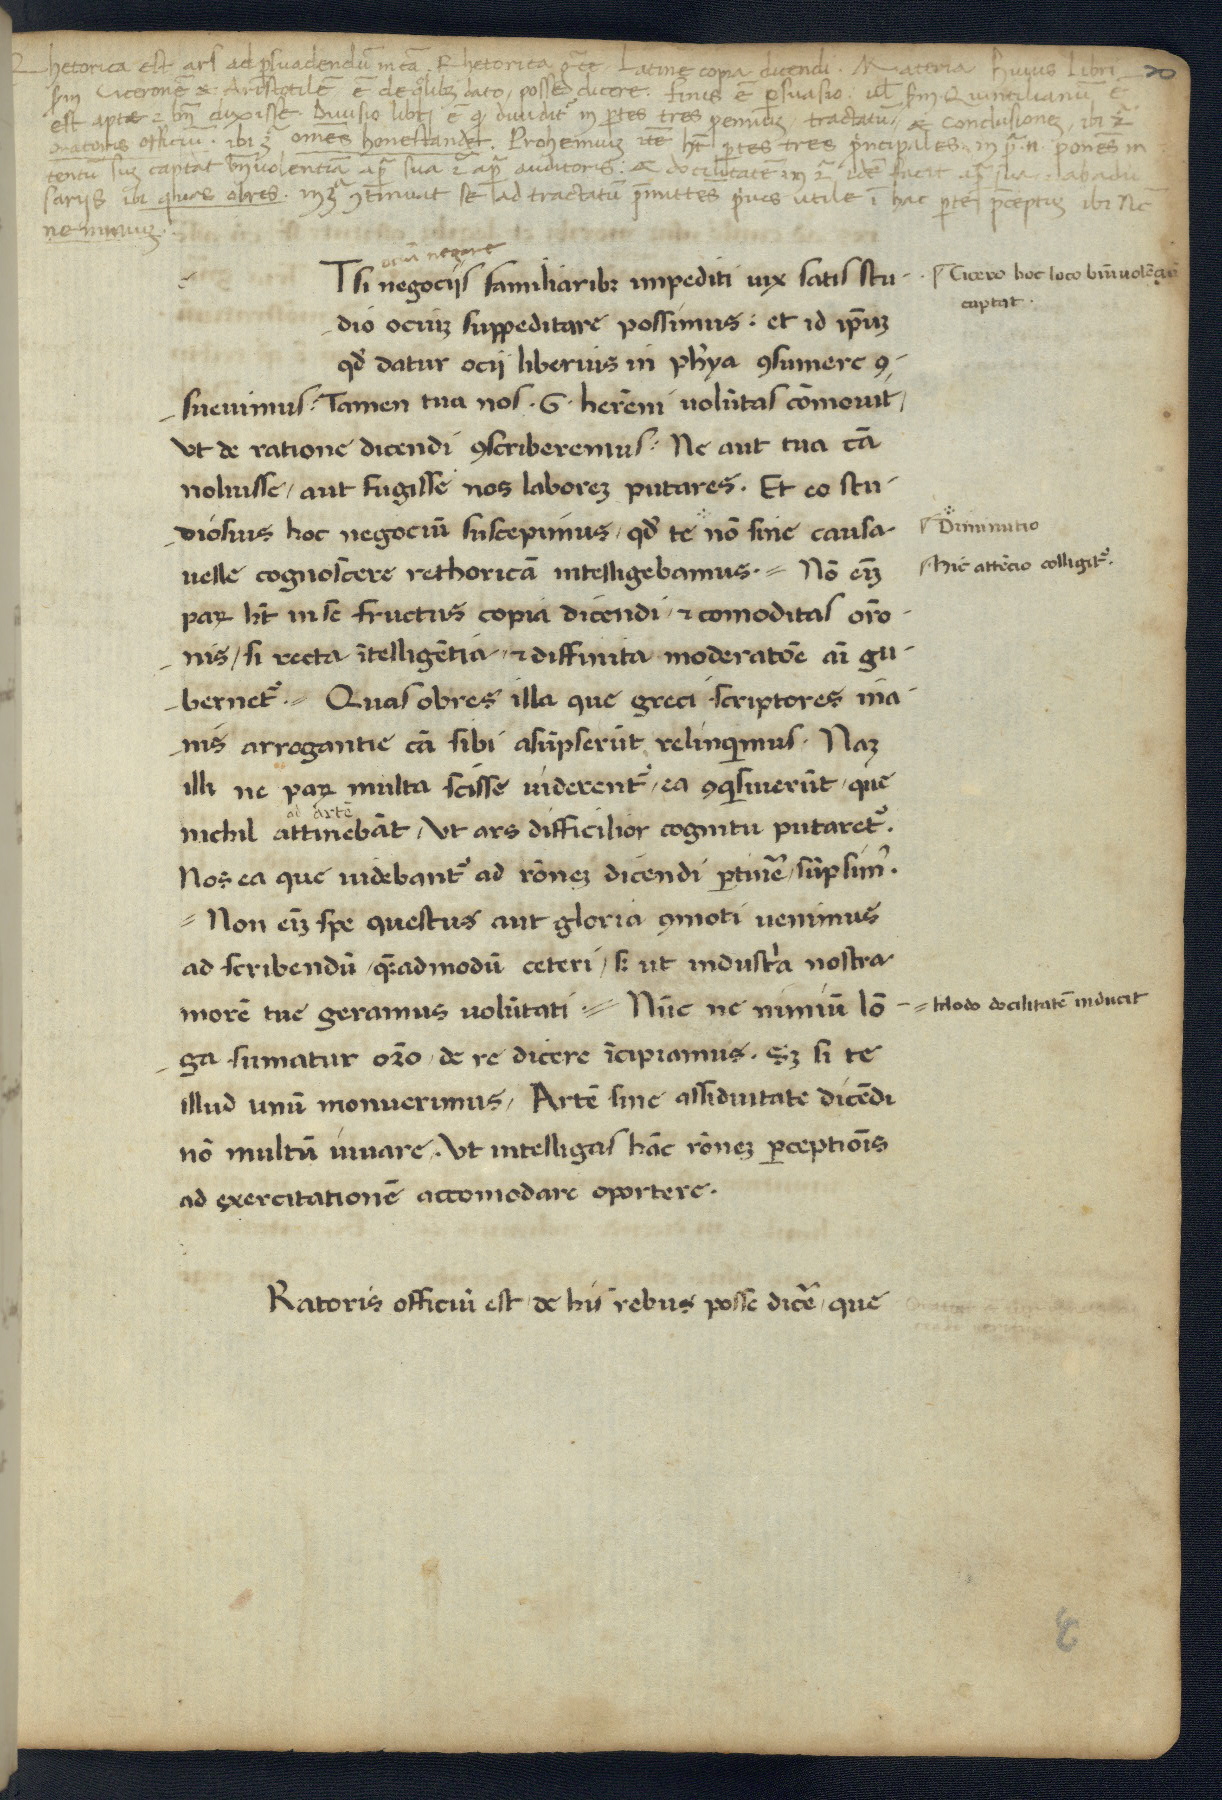 Rhetorica est ars ad p̄suadendū in cā. Rhetorica gͬce Latine copia dicendi. Materia huius Libri
sm Ciceronē & Aristotilē ē de qͥlibꝫ dato, posse dicere. finis ē ꝑsuasio. ul' sm Quintilianū ē
est apte & bn̄ duxisse Diuisio libri ē q diuidit᷑ in partes tres tractatū, & conclusionem, ibi 2ᵃ
oratoris officiū. ibi 3ᵃ omes honestandet. Prohemiuꝫ itē ht̄ partes tres pͥncipales. in pͣ
tentū suꝫ captat bn̄iuolentiā aꝑ suā & aꝑ auditoris: & docilitatē in 2ᵃ idē facit
sarijs ibi quas obres. in 3ᵃ ɔtinuat se ad tractatū p̄mittes utile ī hac parte p̄ceptuꝫ ibi Nc̄
ne nimiuꝫ.
ociū negare
Tsi negocijs familiaribꝫ impediti uix satis stu-
dio ociuꝫ suppeditare possimus: et id ip̄uꝫ
qd̄ datur ocij liberius in ph̄ya ꝯsumere ꝯ-
sueuimus: Tamen tua nos .G. herēni volūtas cōmouit,
Vt de ratione dicendi ꝯscriberemus: Ne aut tua cā
noluisse, aut fugisse nos laboreꝫ putares. Et eo stu-
diosius hoc negociū suscepimus, qd̄ te nō sine causa
uelle cognoscere rethoricā intelligebamus. = Nō eīꝫ
paꝝ ht̄ in se fructus copia dicendi, & comoditas or̄o
nis, si recta ītelligētia, & diffinita moderatōe ai gu-
bernet᷑. = Quas obres illa que greci scriptores ina-
nis arrogantie cā sibi asūpserūt relinqͥmus. Naꝫ
illi ne paꝝ multa scisse uiderent᷑, ea ꝯqͥsiuerūt, que
ad artē
nichil attinebāt, Vt ars difficilior cognitu putaret᷑.
Nos ea que uidebant᷑ ad rōneꝫ dicendi ꝑtinē, sūpsim᷒.
= Non eīꝫ spe questus aut gloria ꝯmoti uenimus
ad scribendū, qͣꝫadmodū ceteri, sꝫ ut industͥa nostra
morē tue geramus volūtati. = Nūc ne nimiū lō
ga sumatur or̄o, de re dicere īcipiamus. Sꝫ si te
illud unū monuerimus, Artē sine assiduitate dicēdi
nō multū iuuare. Vt intelligas hāc rōneꝫ ꝑceptiōis
ad exercitationē accomodare oportere.
Ratoris officiū est, de his rebus posse dicē, que
Cicero hoc loco bn̄iuolētiā
captat.
Diminutio
Hic attētio colligit᷑.
= Modo docilitatē inducit